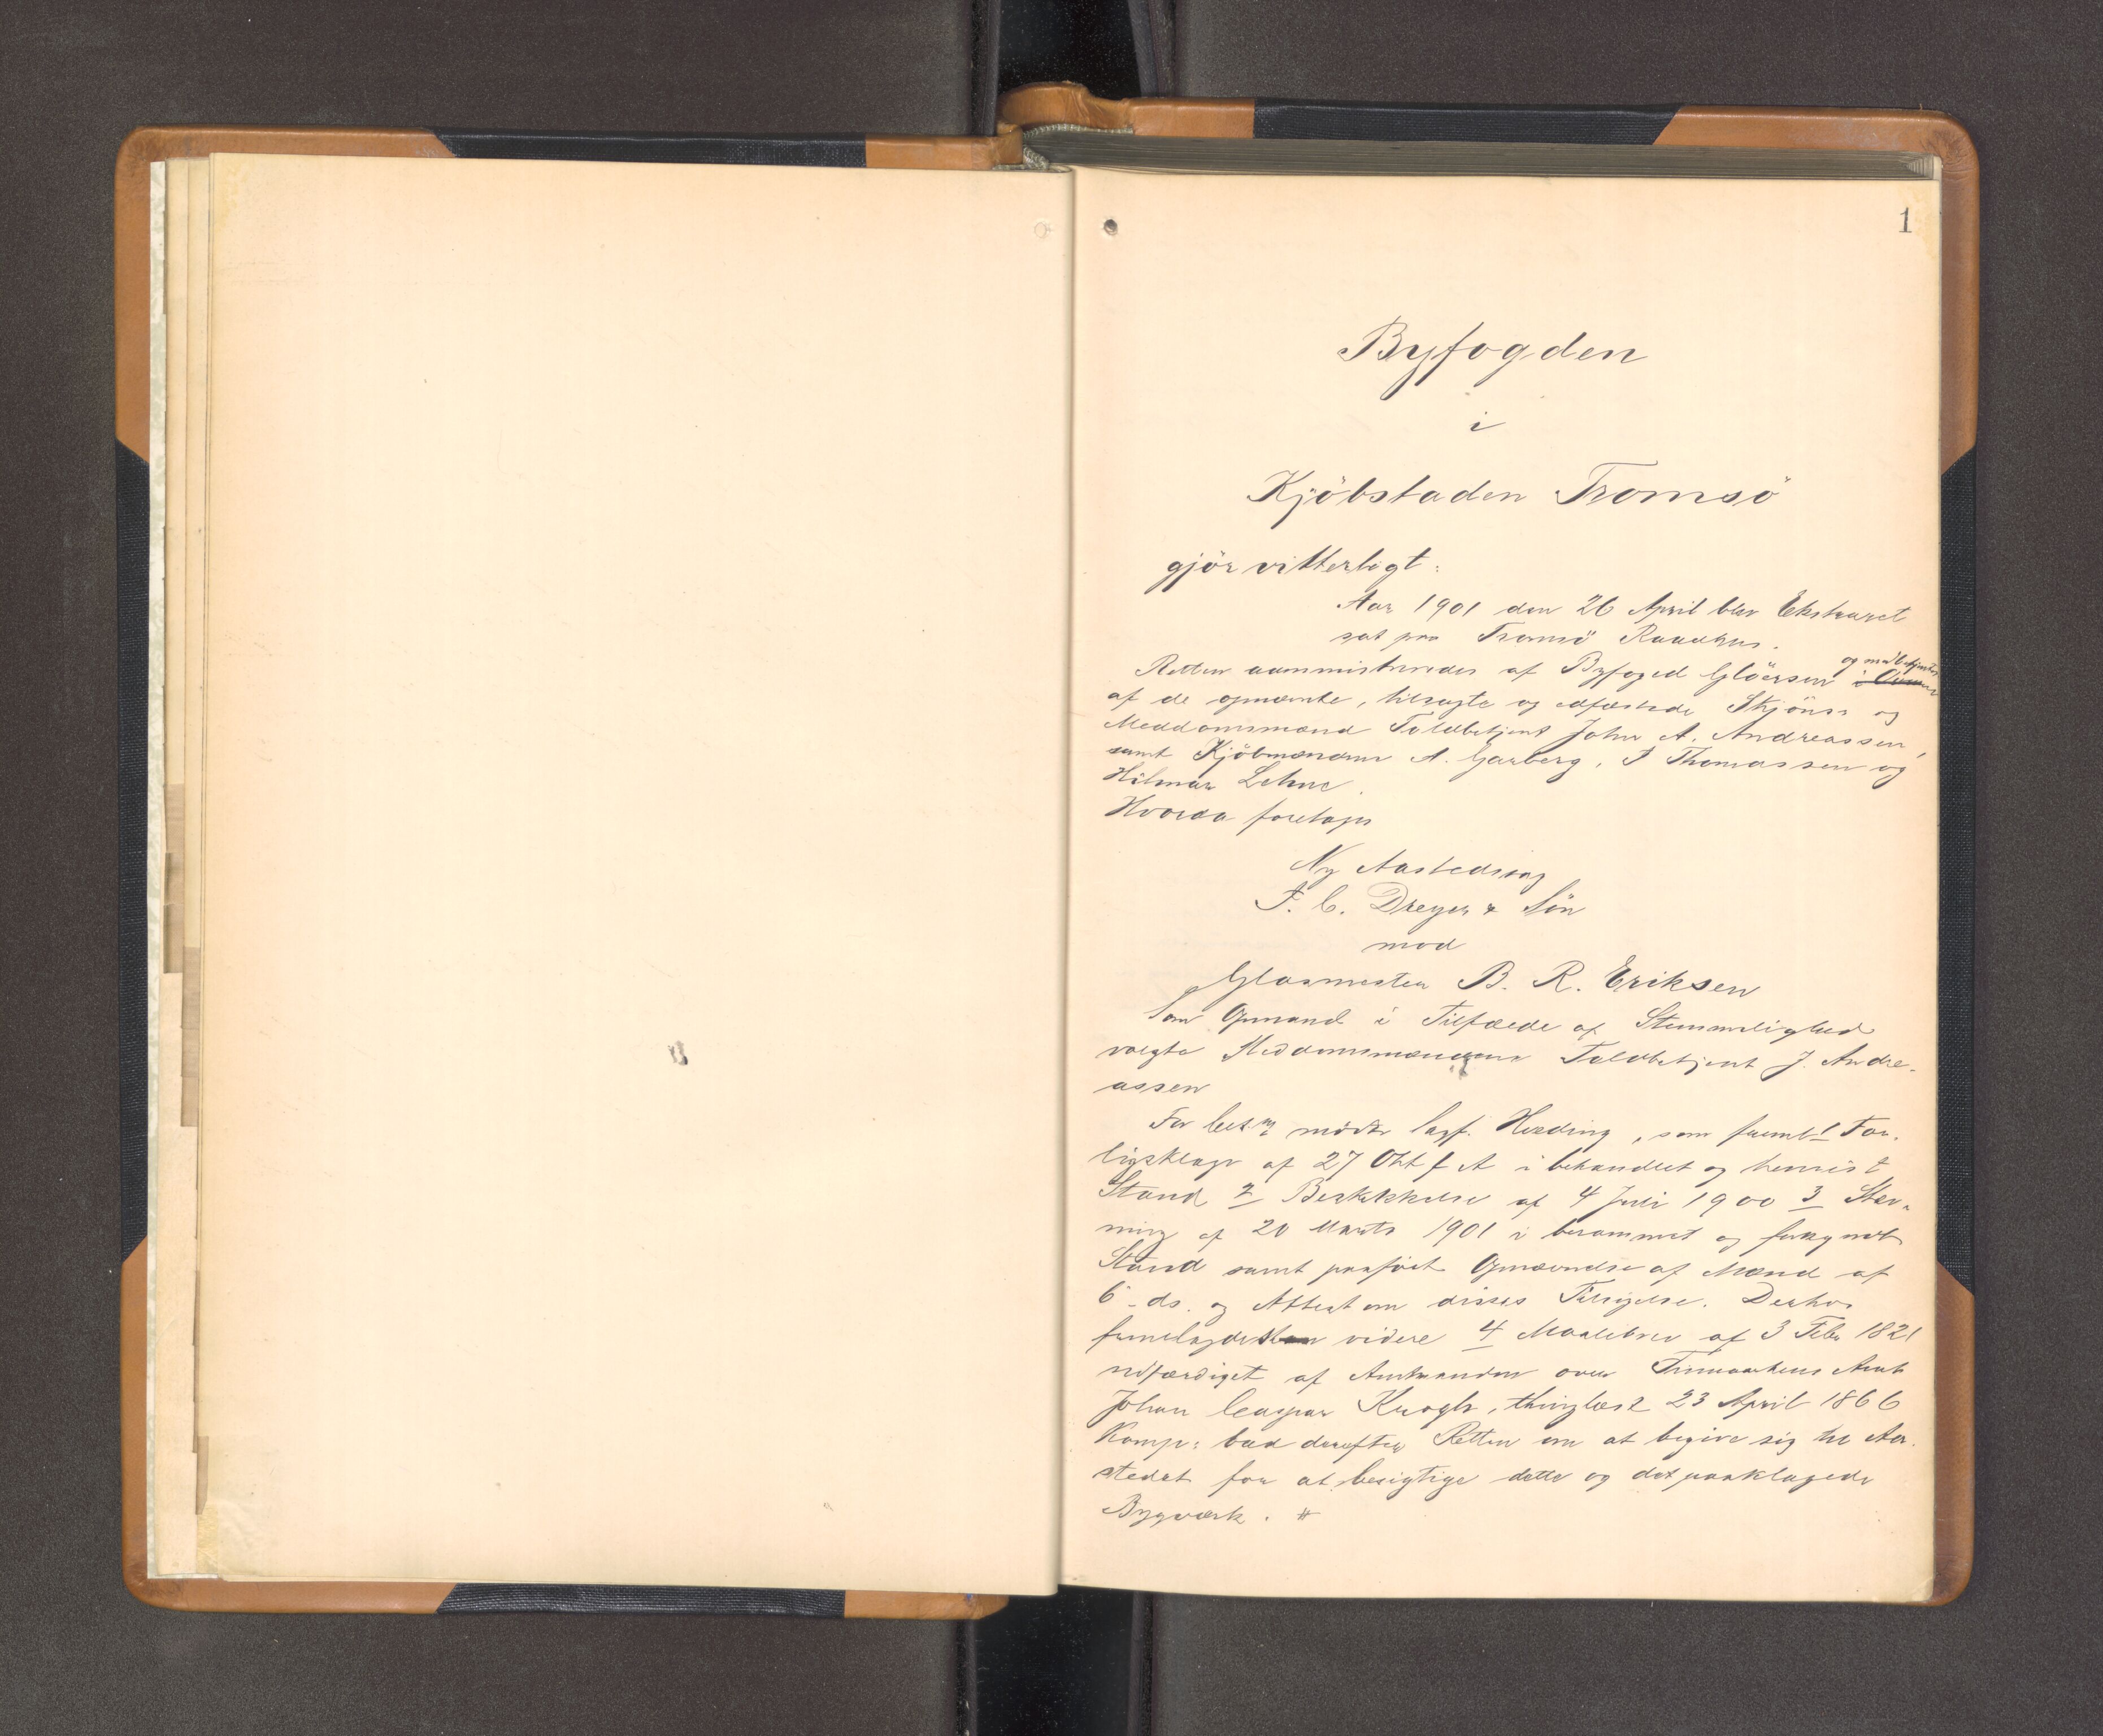 1
Byfogden
i
Kjöbstaden Tromsö
gjör vitterligt:
Aar 1901 den 26 April blev Ekstraret
sat paa Tromsö Raadhus.
Retten administreredes af Byfoged Gløersen og medbetjentes
af de opnævnte, tilsagte og edfæstede Skjöns og
Meddomsmænd Toldbetjent John A. Andreassen,
samt Kjöbmændene A. Garberg, J Thomassen og
Hilmar Lehne.
Hvorda foretoges
Ny Aastedssag
F. C. Dreyer & Sön
mod
Glasmester B. R. Eriksen
Som Opmand i Tilfælde af Stemmelighed
valgte Meddomsmændene Toldbetjent J. Andre-
assen
For Cit. mödte Sagf. Herding, som freml. 1 For-
ligsklage af 27 Okt f A i behandlet og henvist
Stand 2 Beskikkelse af 4 Juli 1900 3 Stev-
ning af 20 Marts 1901 i berammet og forkyndt
Stand samt paaført Opnævnelse af Mænd af
6 ds. og Attest om disses Tilsigelse. Derhos
fremlagdes videre 4 Maalebrev af 3 Febr 1821
udfærdiget af Amtmanden over Finmarkens Amt
Johan Caspar Krogh, thinglæst 23 April 1866
Komp: bad derefter Retten om at begive sig til Aa-
stedet for at besigtige dette og det paaklagede
Bygværk. #